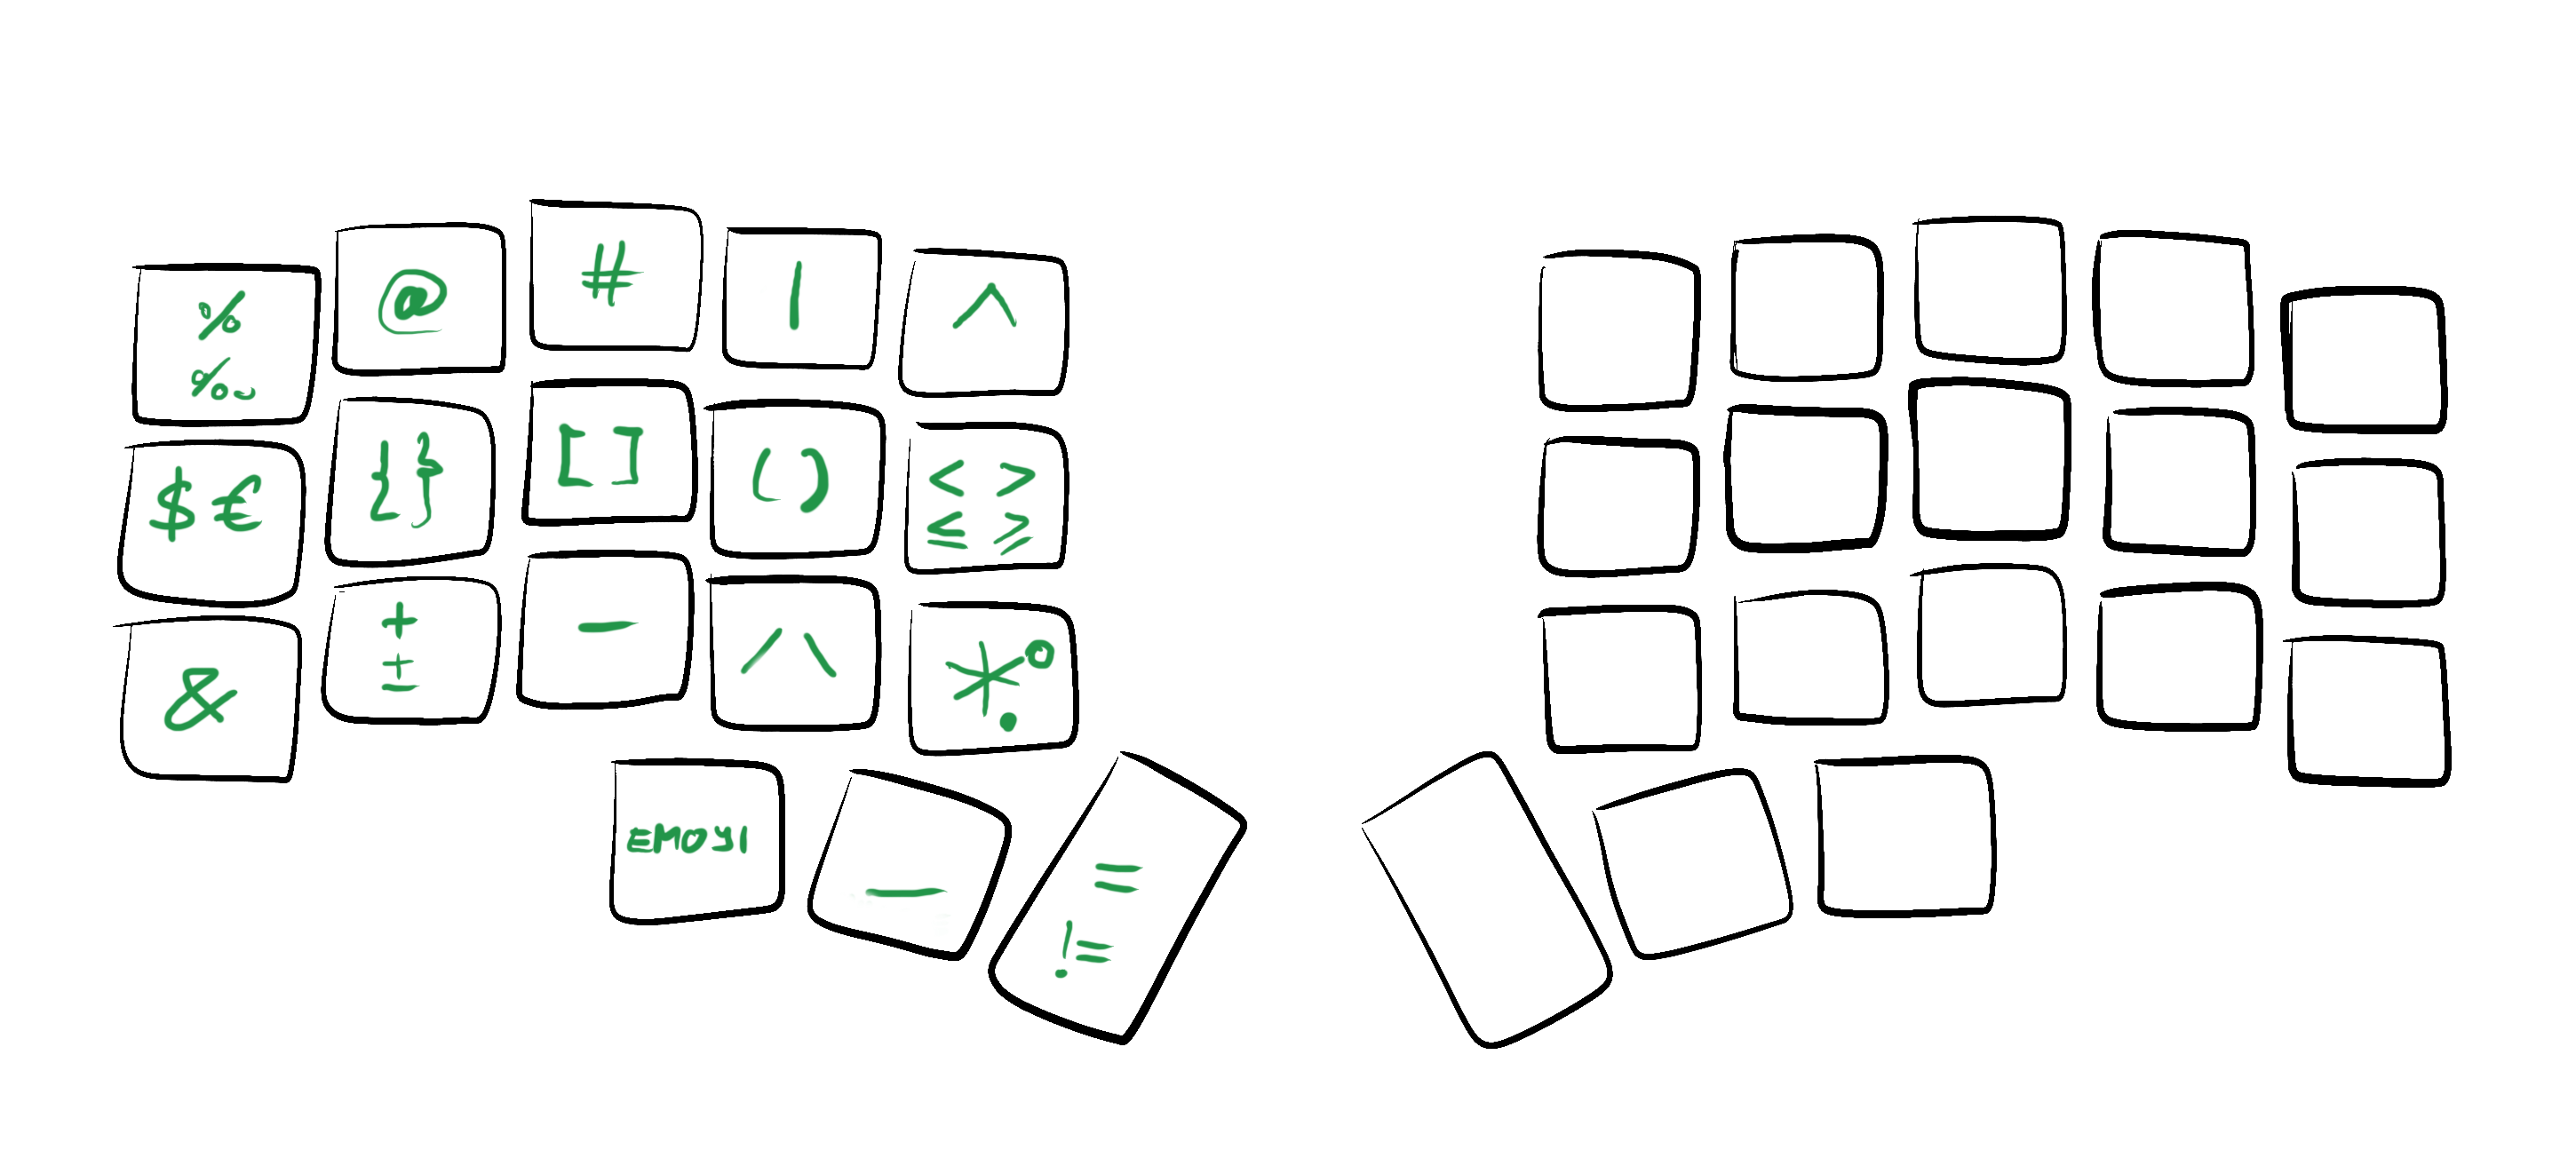 % @ # | ^
‰
$ € {} [] () < >
≤ ≥
& + - / \ * °
± •
EMOJI _ =
!=